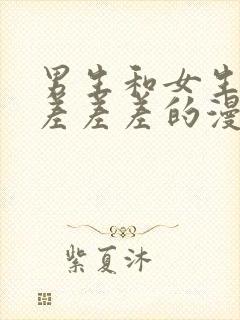 男生和女生
差差差的漫
紫夏沐